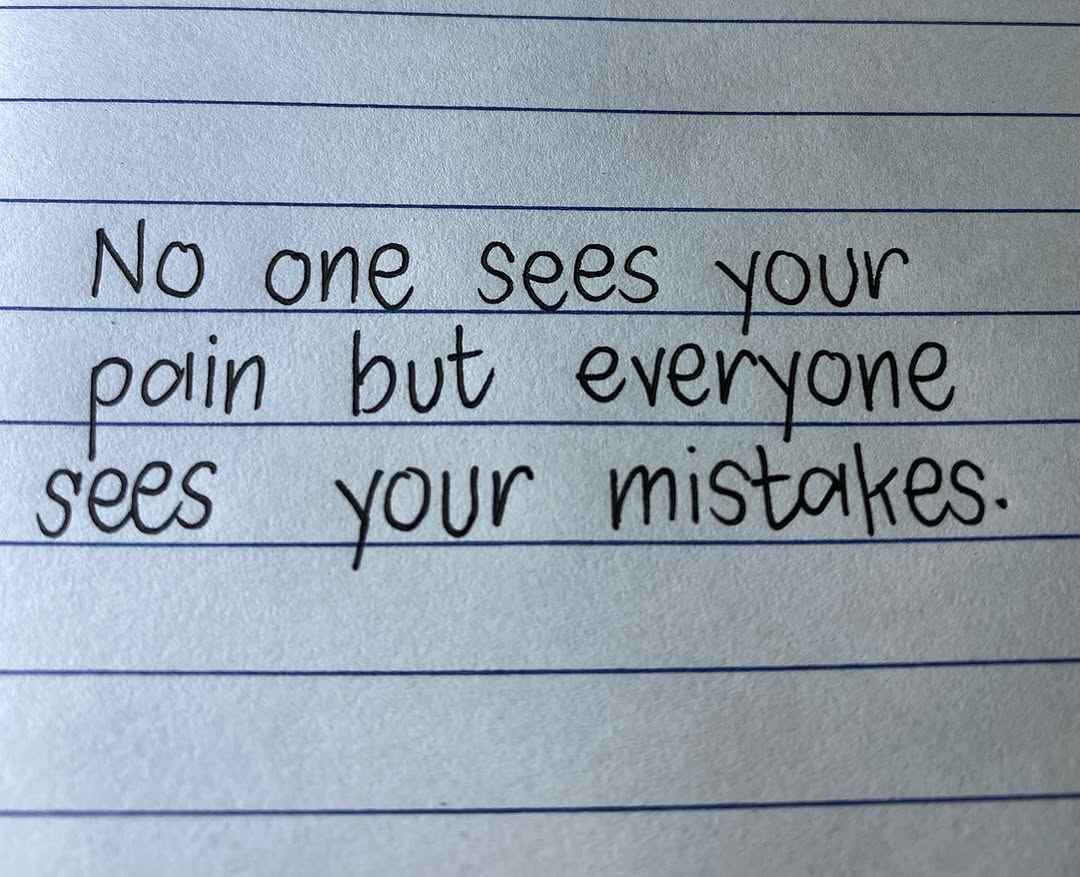 No one sees your
pain but everyone
sees your mistakes.